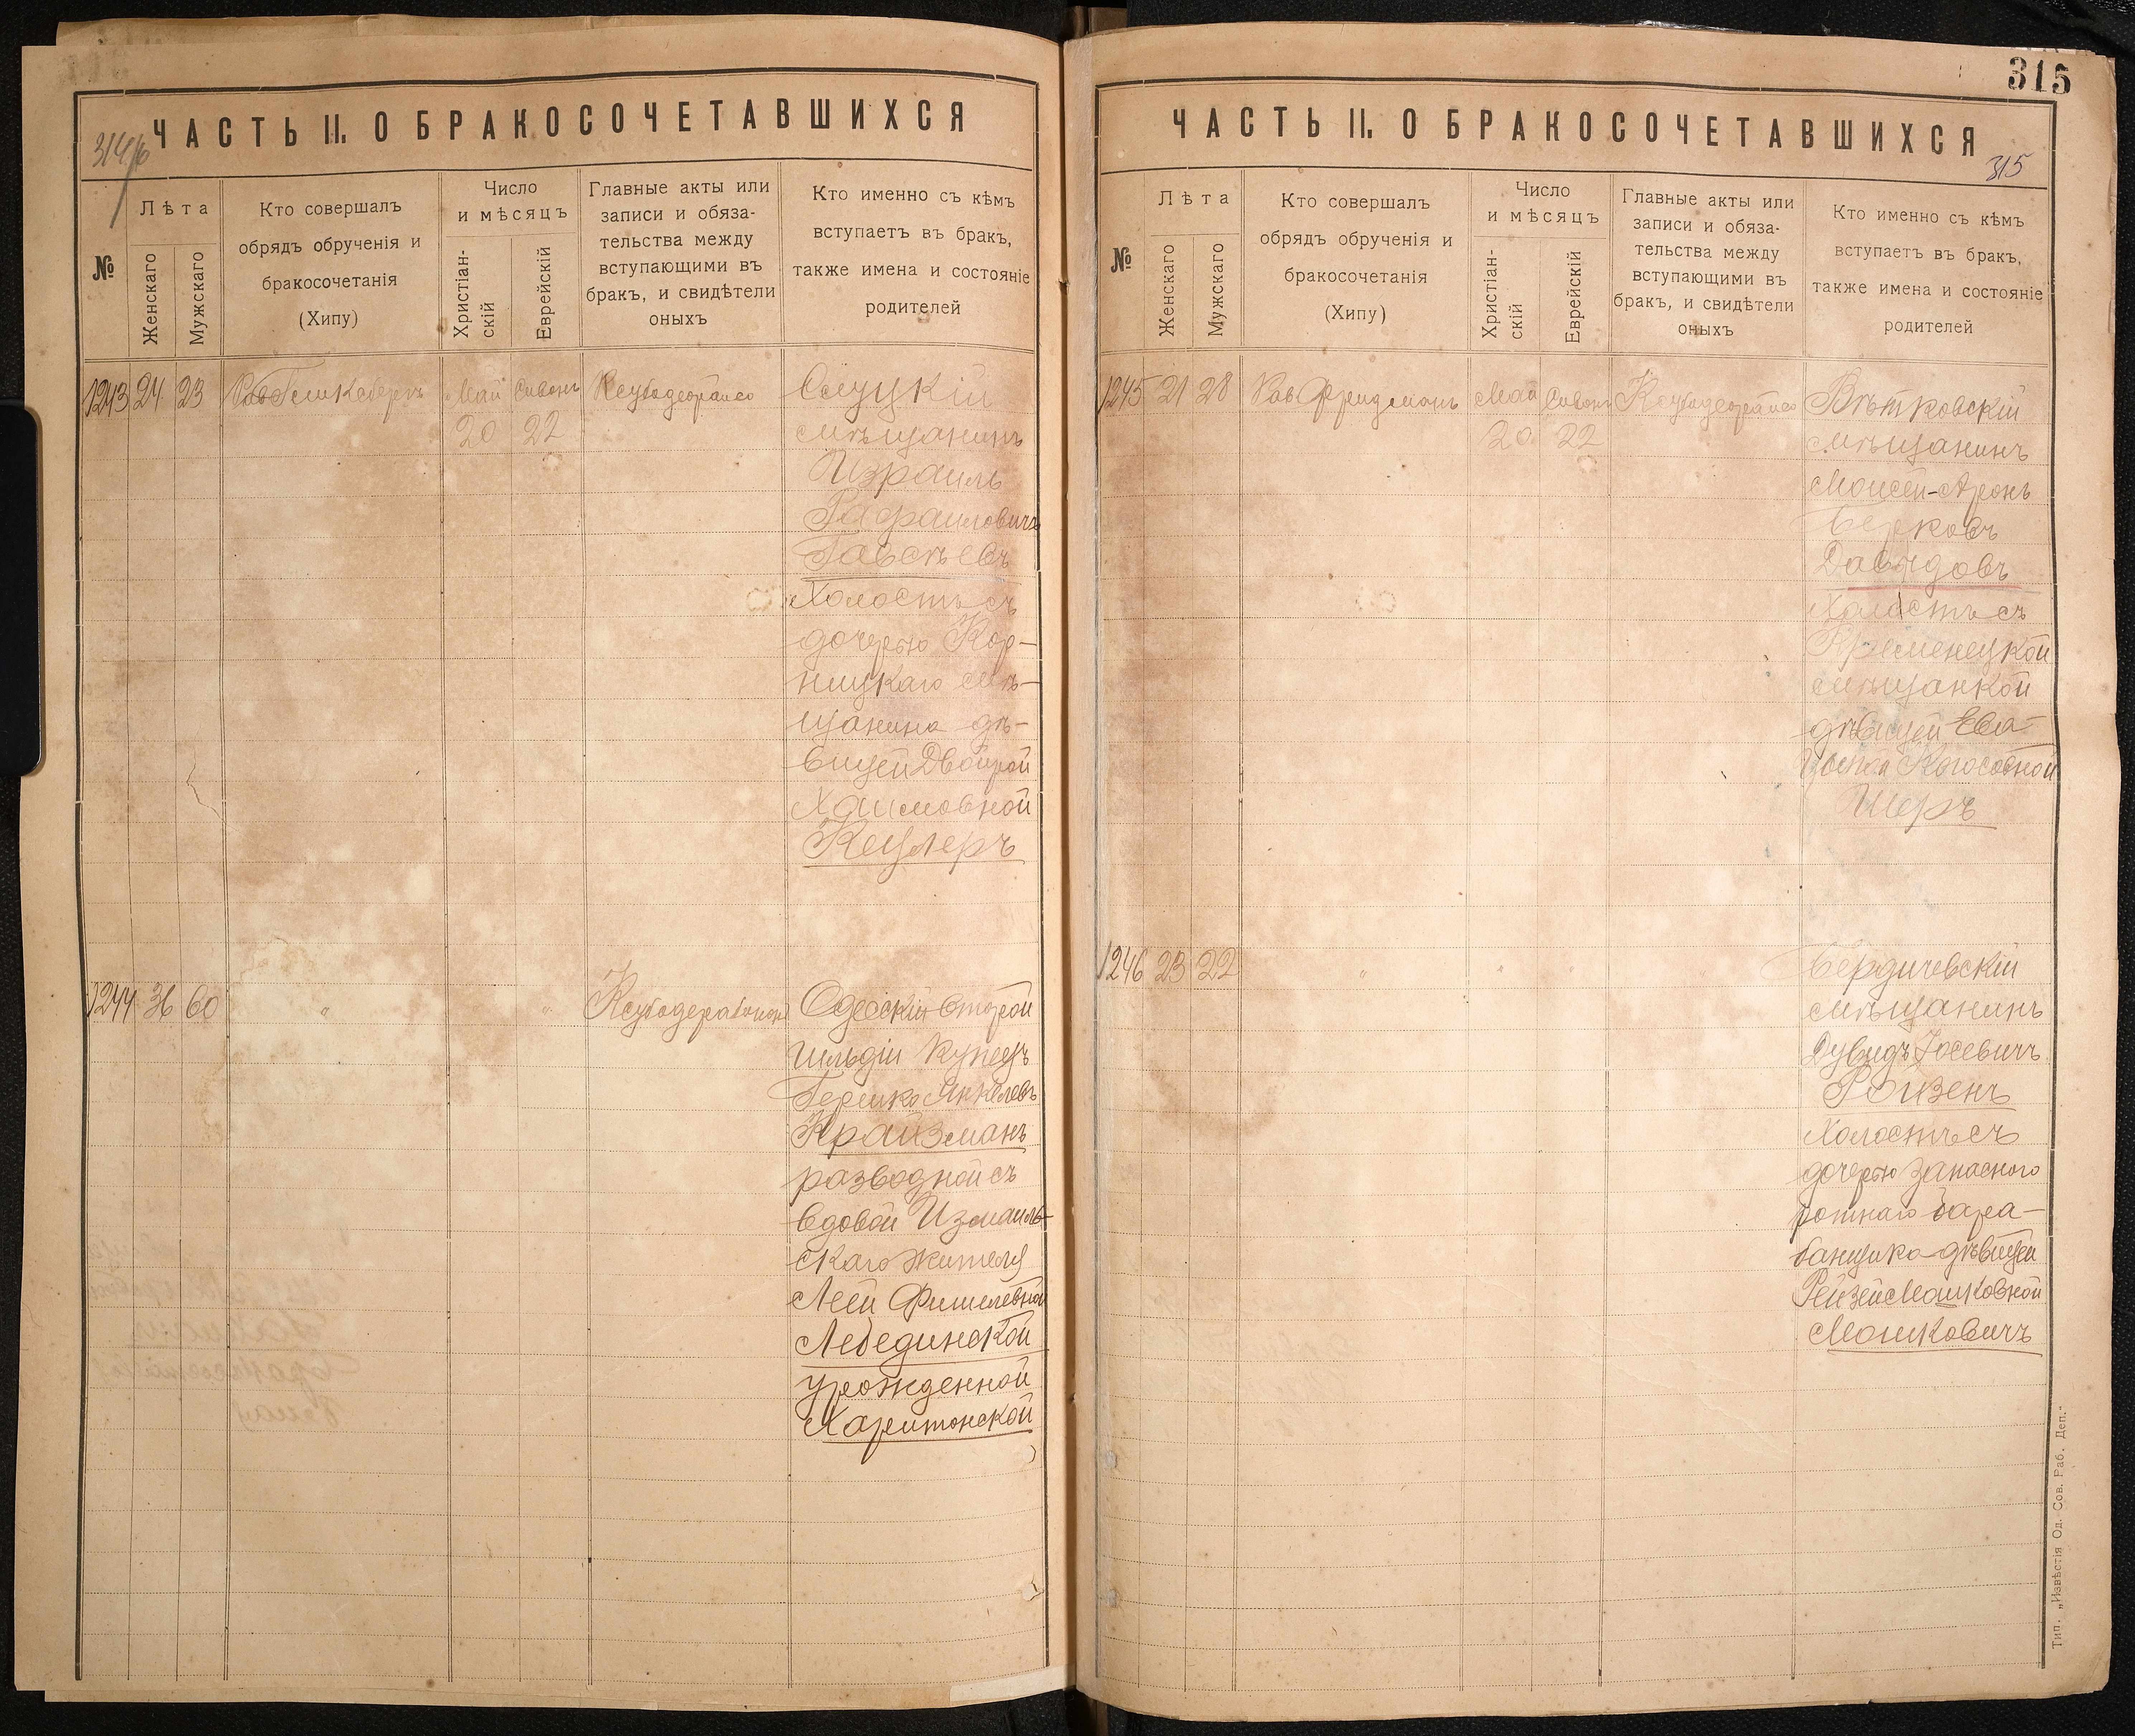 ЧАСТЬ II. О БРАКОСОЧЕТАВШИХСЯ
314/б
№
Лѣта
Женскаго
Мужскаго
Кто совершалъ
обрядъ обрученія и
бракосочетанія
(Хипу)
Число
и мѣсяцъ
Христіан-
скій
Еврейскій
Главные акты или
записи и обяза-
тельства между
вступающими въ
бракъ, и свидѣтели
оныхъ
Кто именно съ кѣмъ
вступаетъ въ бракъ,
также имена и состояніе
родителей
1243 24 23
Май Сивонъ
20 22
Слуцкій
мѣщанинъ
Израиль
Рафаиловичъ
Холостъ съ
дочерью Кор-
ницкаго мѣ-
щанина дѣ-
вицей Двойрой
Хаимовной
Кецлеръ
1244 36 60 " " "
Одесскій второй
гильдіи купецъ
Гершко Янкелевъ
Крайзманъ
разводной съ
вдовой Измаиль-
скаго жителя
Леей Фишелевной
Лебединской
урожденной
Харитонской
315
ЧАСТЬ II. О БРАКОСОЧЕТАВШИХСЯ
315
№
Лѣта
Женскаго
Мужскаго
Кто совершалъ
обрядъ обрученія и
бракосочетанія
(Хипу)
Число
и мѣсяцъ
Христіан-
скій
Еврейскій
Главные акты или
записи и обяза-
тельства между
вступающими въ
бракъ, и свидѣтели
оныхъ
Кто именно съ кѣмъ
вступаетъ въ бракъ,
также имена и состояніе
родителей
1245 21 28 Рав Фридманъ Май Сивонъ
20 22
Вѣтковскій
мѣщанинъ
Моисей-Аронъ
Берковъ
Давыдовъ
Холостъ съ
Кременецкой
мѣщанкой
дѣвицей Ева-
Шеръ
1246 23 22 " " "
Бердичевскій
мѣщанинъ
Дувидъ Іосевичъ
Ройзенъ
Холостъ съ
дочерью запасного
ротнаго бара-
банщика дѣвицей
Рейзей Мошковной
Мошковичъ
Тип. „Извѣстія Од. Сов. Раб. Деп."